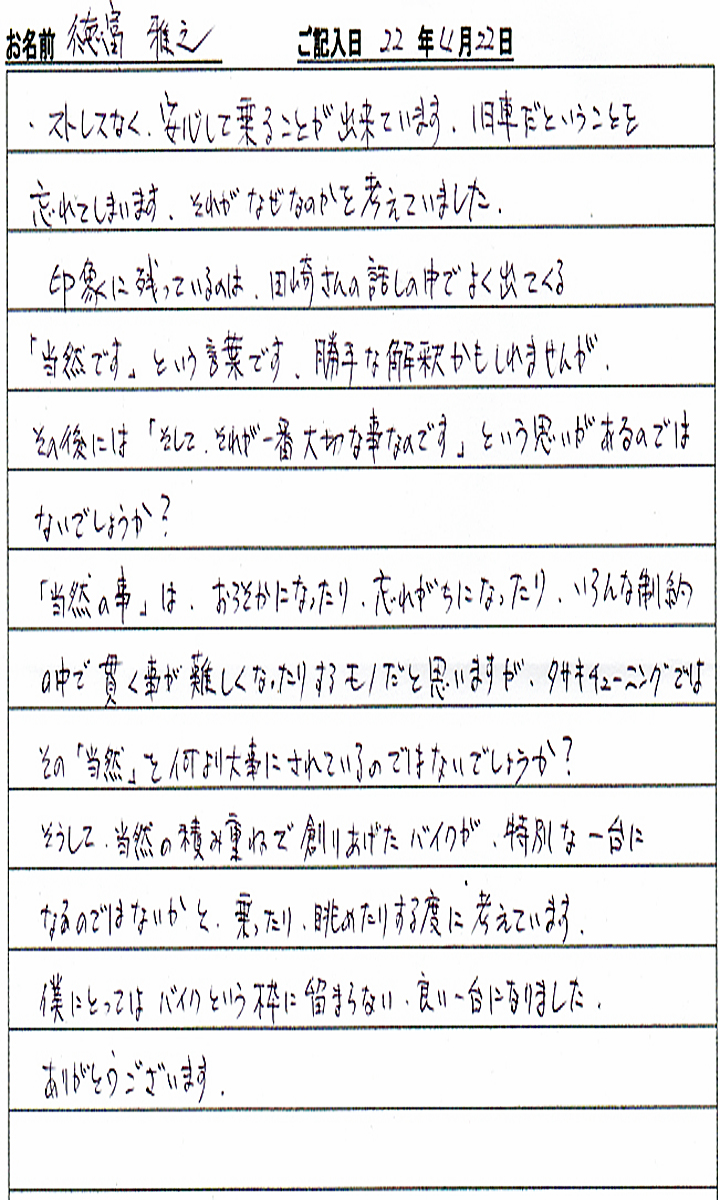 お名前 徳富 雅之 ご記入日 22年11月22日
・ストレスなく、安心して乗ることが出来ています。旧車だということを
忘れてしまいます。それがなぜなのかを考えていました。
印象に残っているのは、田崎さんの話しの中でよく出てくる
「当然です」という言葉です。勝手な解釈かもしれませんが、
その後には「そして、それが一番大切な事なのです」という思いがあるのでは
ないでしょうか?
「当然の事」は、おろそかになったり、忘れがちになったり、いろんな制約
の中で貫く事が難しくなったりするモノだと思いますが、タサキチューニングでは
その「当然」を何より大事にされているのではないでしょうか?
そうして、当然の積み重ねで創りあげたバイクが、特別な一台に
なるのではないかと、乗ったり、眺めたりする度に考えています。
僕にとってはバイクという枠に留まらない、良い一台になりました。
ありがとうございます。